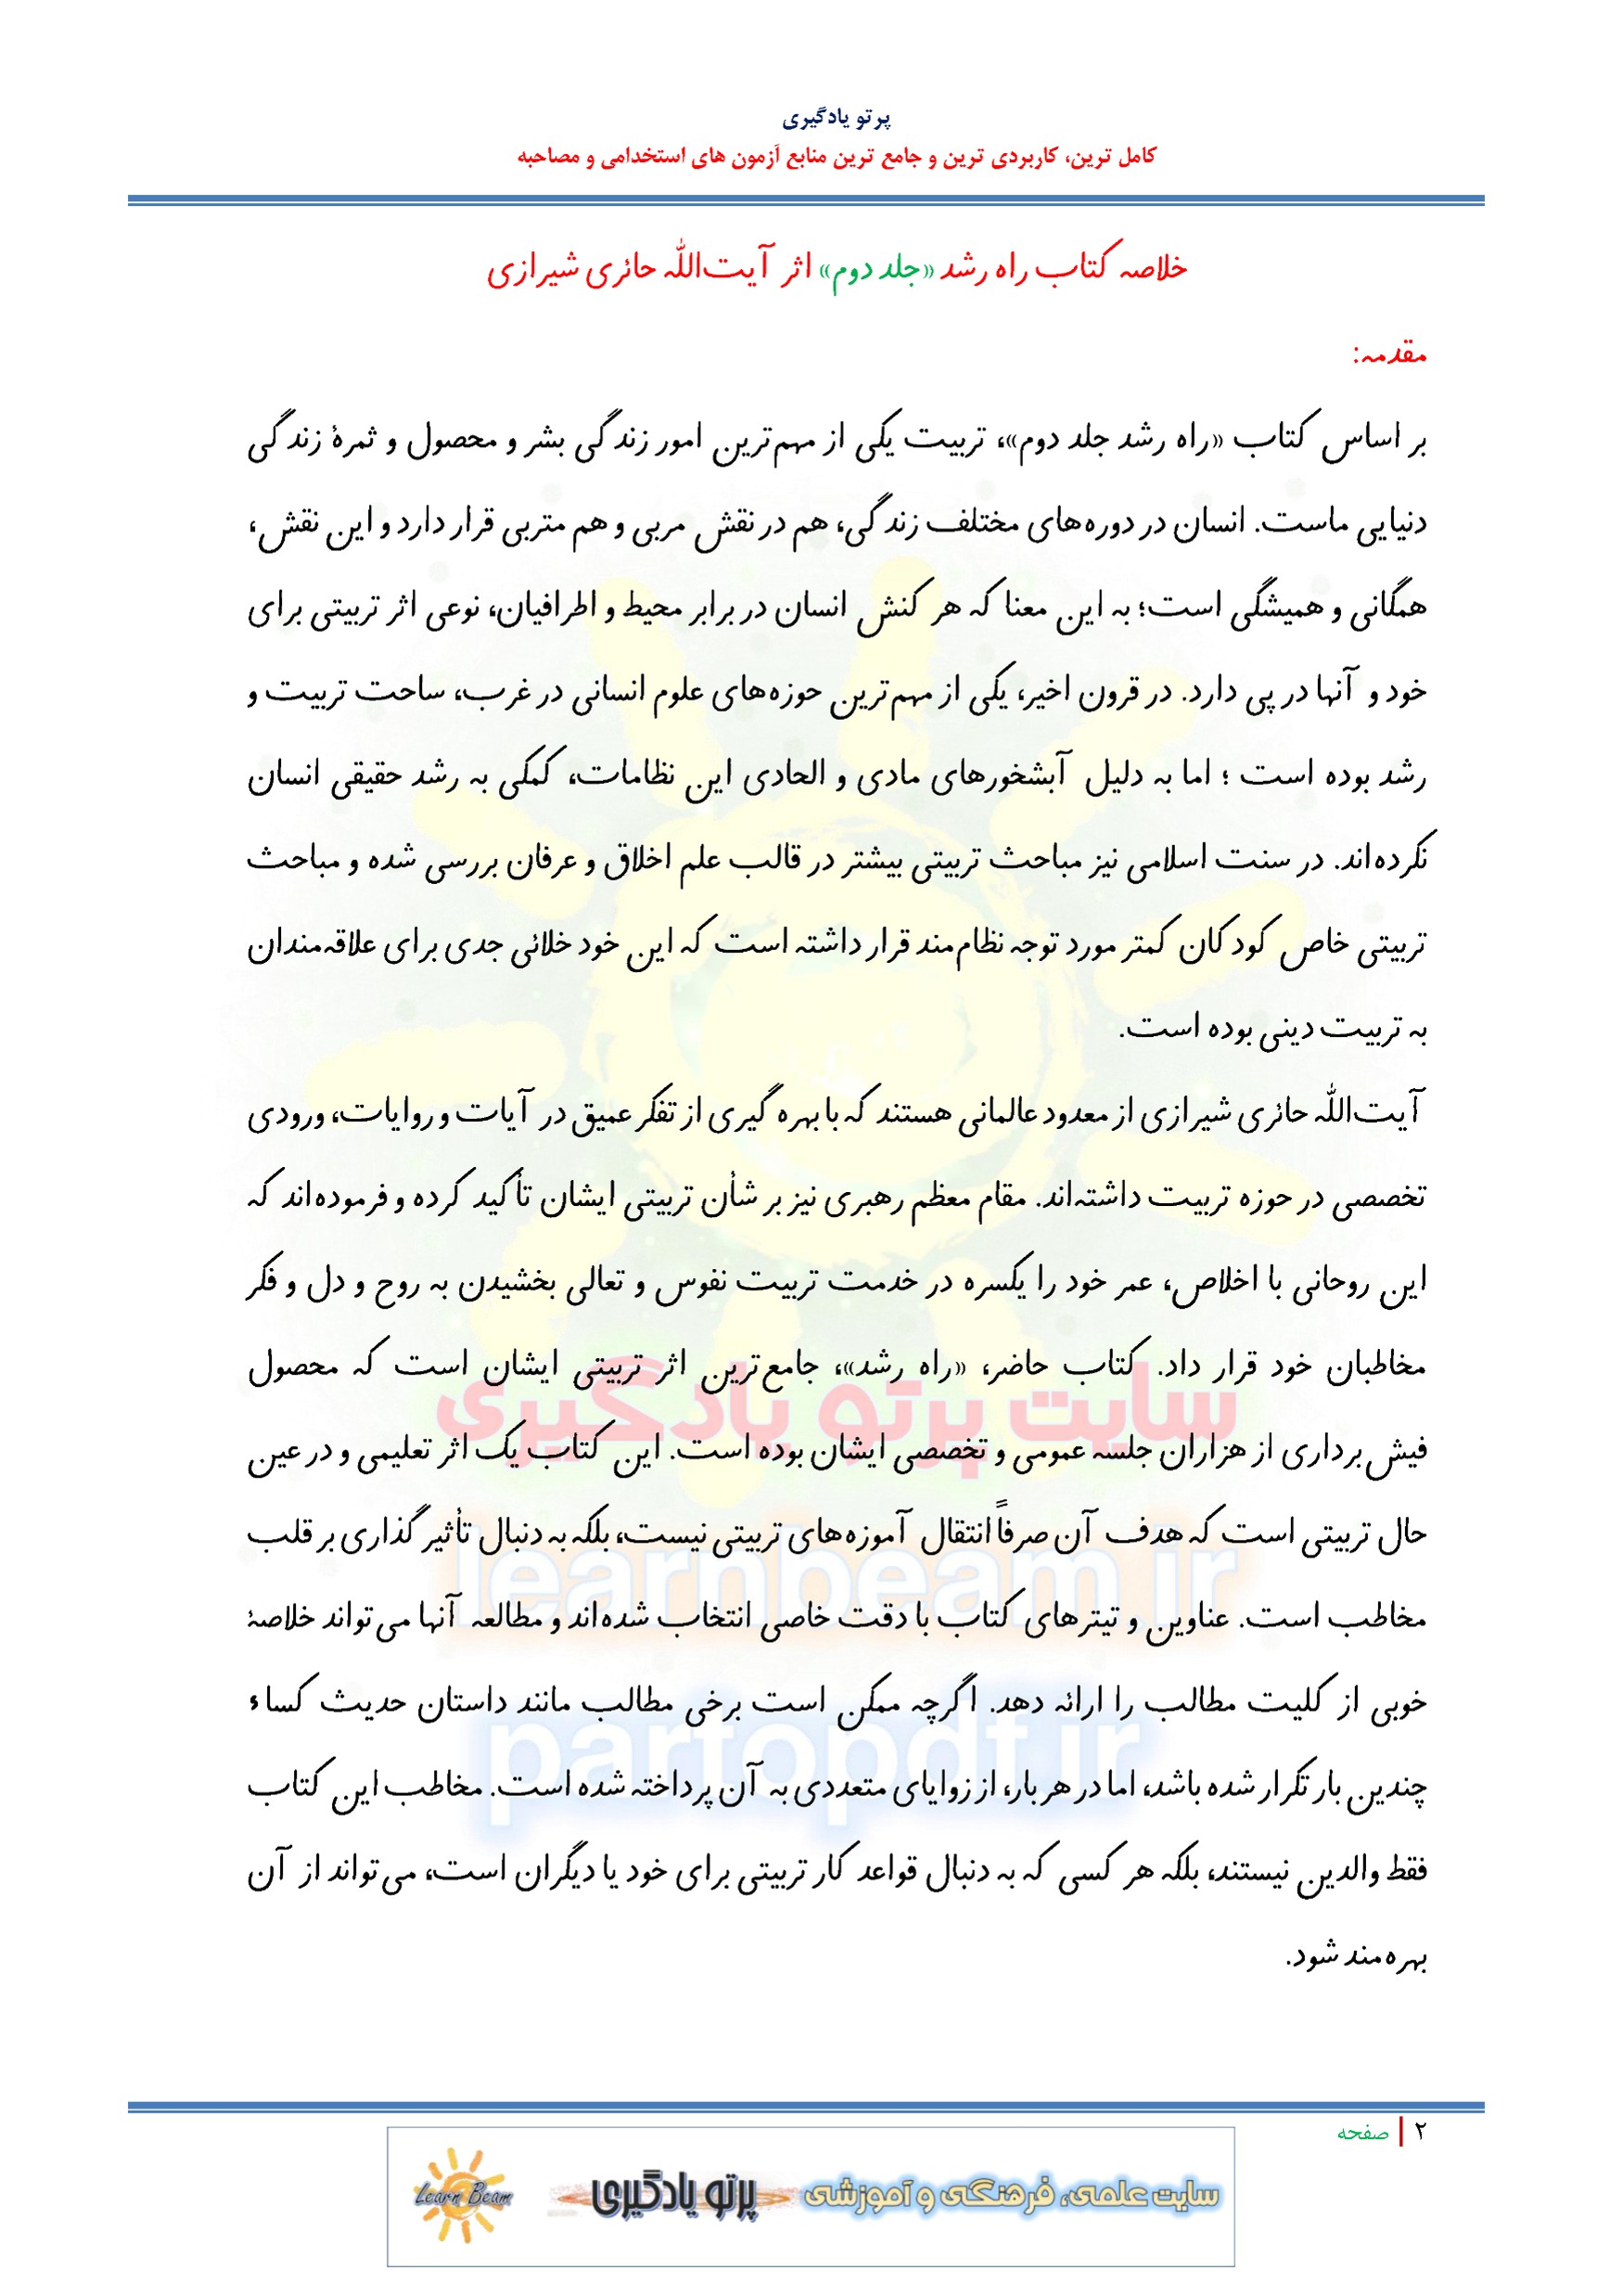 پرتو یادگیری
کامل ترین، کاربردی ترین و جامع ترین منابع آزمون های استخدامی و مصاحبه
خلاصه کتاب راه رشد «جلد دوم» اثر آیت‌الله حائری شیرازی
مقدمه:
بر اساس کتاب «راه رشد جلد دوم»، تربیت یکی از مهم‌ترین امور زندگی بشر و محصول و ثمرۀ زندگی
دنیایی ماست. انسان در دوره‌های مختلف زندگی، هم در نقش مربی و هم متربی قرار دارد و این نقش،
همگانی و همیشگی است؛ به این معنا که هر کنش انسان در برابر محیط و اطرافیان، نوعی اثر تربیتی برای
خود و آنها در پی دارد. در قرون اخیر، یکی از مهم‌ترین حوزه‌های علوم انسانی در غرب، ساحت تربیت و
رشد بوده است ؛ اما به دلیل آبشخورهای مادی و الحادی این نظامات، کمکی به رشد حقیقی انسان
نکرده‌اند. در سنت اسلامی نیز مباحث تربیتی بیشتر در قالب علم اخلاق و عرفان بررسی شده و مباحث
تربیتی خاص کودکان کمتر مورد توجه نظام‌مند قرار داشته است که این خود خلائی جدی برای علاقه‌مندان
به تربیت دینی بوده است.
آیت‌الله حائری شیرازی از معدود عالمانی هستند که با بهره گیری از تفکر عمیق در آیات و روایات، ورودی
تخصصی در حوزه تربیت داشته‌اند. مقام معظم رهبری نیز بر شأن تربیتی ایشان تأکید کرده و فرموده‌اند که
این روحانی با اخلاص، عمر خود را یکسره در خدمت تربیت نفوس و تعالی بخشیدن به روح و دل و فکر
مخاطبان خود قرار داد. کتاب حاضر، «راه رشد»، جامع‌ترین اثر تربیتی ایشان است که محصول
فیش‌برداری از هزاران جلسه عمومی و تخصصی ایشان بوده است. این کتاب یک اثر تعلیمی و در عین
حال تربیتی است که هدف آن صرفاً انتقال آموزه‌های تربیتی نیست، بلکه به دنبال تأثیرگذاری بر قلب
مخاطب است. عناوین و تیترهای کتاب با دقت خاصی انتخاب شده‌اند و مطالعه آنها می‌تواند خلاصۀ
خوبی از کلیت مطالب را ارائه دهد. اگرچه ممکن است برخی مطالب مانند داستان حدیث کساء
چندین بار تکرار شده باشد، اما در هر بار، از زوایای متعددی به آن پرداخته شده است. مخاطب این کتاب
فقط والدین نیستند، بلکه هر کسی که به دنبال قواعد کار تربیتی برای خود یا دیگران است، می‌تواند از آن
بهره‌مند شود.
سایت پرتو یادگیری
learnbeam.ir
partopdf.ir
۲ | صفحه
سایت علمی، فرهنگی و آموزشی پرتو یادگیری Learn Beam